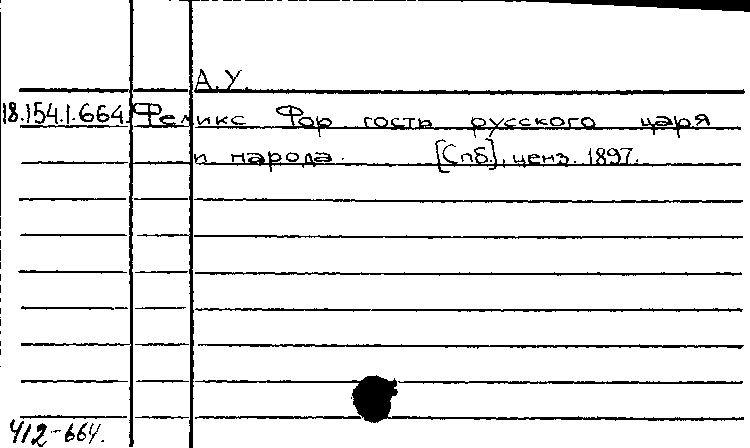 А.У.
18.154.1.664. Феликс Фор гость русского царя
и народа. [Спб.], ценз. 1897.
412-664.